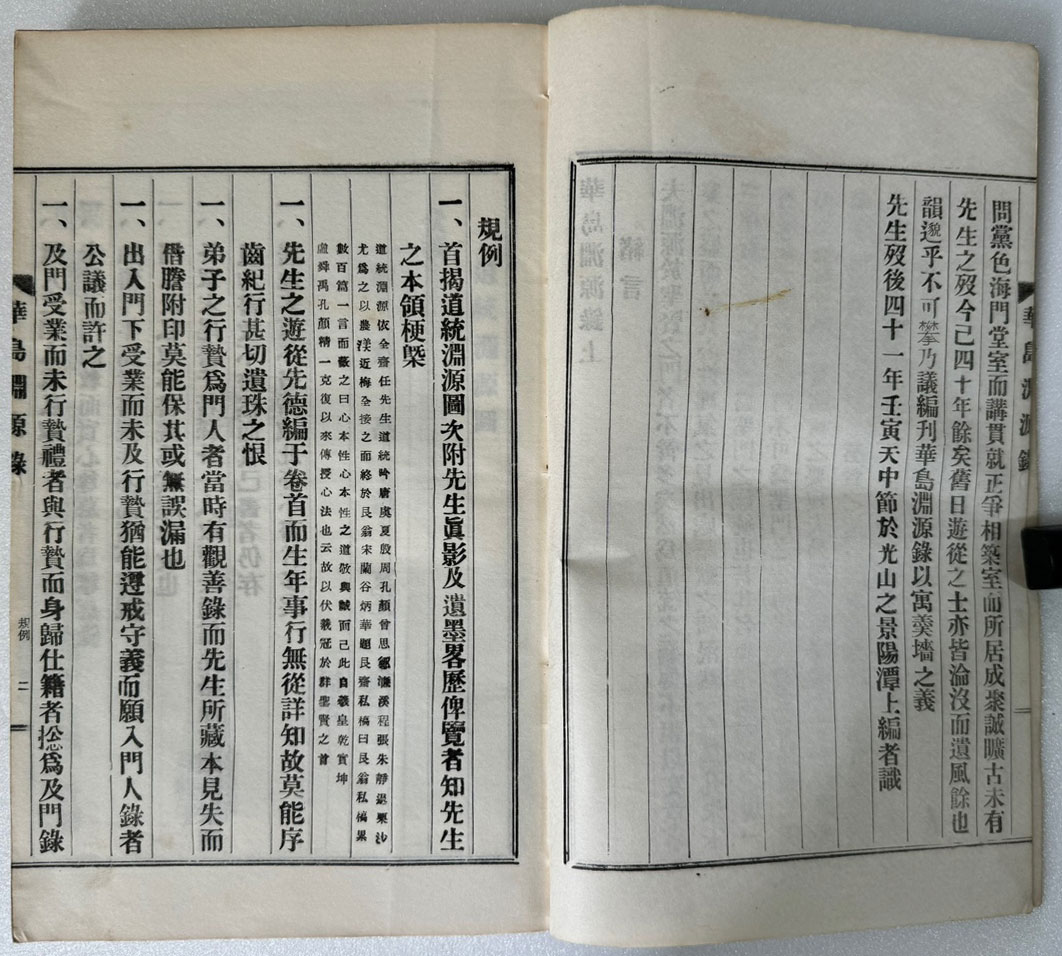 問黨色海門堂室而講貫就正爭相築室而所居成聚誠曠古未有
先生之歿今己四十年餘矣舊日遊從之士亦皆淪沒而遺風餘也
韻邈乎不可攀乃議編刊華島淵源錄以寓羹墻之義
先生歿後四十一年壬寅天中節於光山之景陽潭上編者識
華島淵源錄
規例
一、首揭道統淵源圖次附先生眞影及遺墨畧歷俾覽者知先生
之本領梗槩
道統淵源依全齋任先生道統吟唐虞夏殷周孔顏曾思鄒濂溪程張朱靜退栗沙
尤爲之以農渼近梅全接之而終於艮翁宋蘭谷炳華題艮齋私稿曰艮翁私稿累
數百篇一言而蔽之曰心本性心本性之道敬與誠而己此自羲皇乾實坤
虛舜禹孔顏精一克復以來傳授心法也云故以伏羲冠於群聖賢之首
一、先生之遊從先德編于卷首而生年事行無從詳知故莫能序
齒紀行甚切遺珠之恨
一、弟子之行贄爲門人者當時有觀善錄而先生所藏本見失而
借謄附印莫能保其或無誤漏也
一、出入門下受業而未及行贄猶能遵戒守義而願入門人錄者
公議而許之
一、及門受業而未行贄禮者與行贄而身歸仕籍者揔爲及門錄
華島淵源錄
規例
二